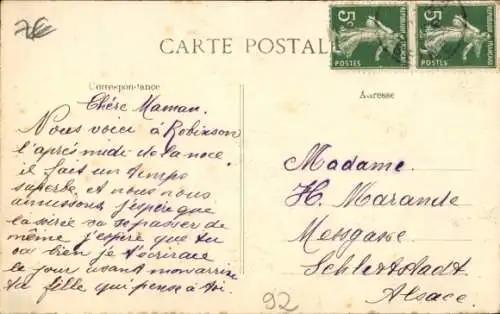 7€
CARTE POSTALE
5c
POSTES
5c
POSTES
Correspondance
Adresse
Chère Maman.
Nous voici à Robinson
l'après midi de la noce.
il fait un temps
superbe. et nous nous
amusons, j'espère que
la soirée va se passer de
même j'espère que tu
va bien je t'écrirai
le jour avant mon arrivée
ta fille qui pense à toi.
Madame
H. Marande
Mesgasse
Schlettstadt
Alsace.
92